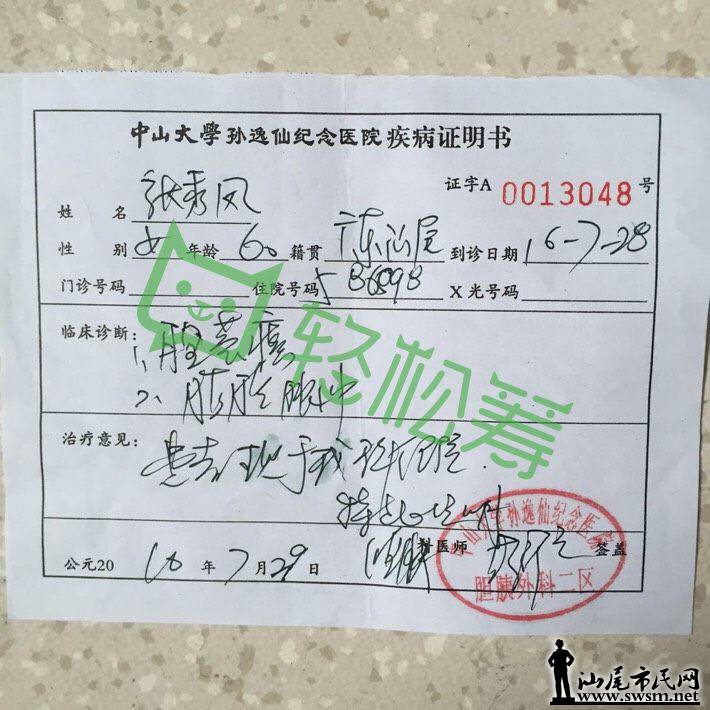 中山大學孙逸仙纪念医院疾病证明书
证字A 0013048 号
姓 名 张秀凤
性 别 女 年龄 60 籍贯 广东汕尾 到诊日期 16-7-28
门诊号码 住院号码 X光号码
临床诊断: 1、胆囊癌
2、胰腺
治疗意见: 患者现于我科住院.
特此证明
科医师 签盖
公元20 16 年 7 月 29 日
中山大学孙逸仙纪念医院
胆胰外科二区
轻松筹
汕尾市民网
www.swsm.net